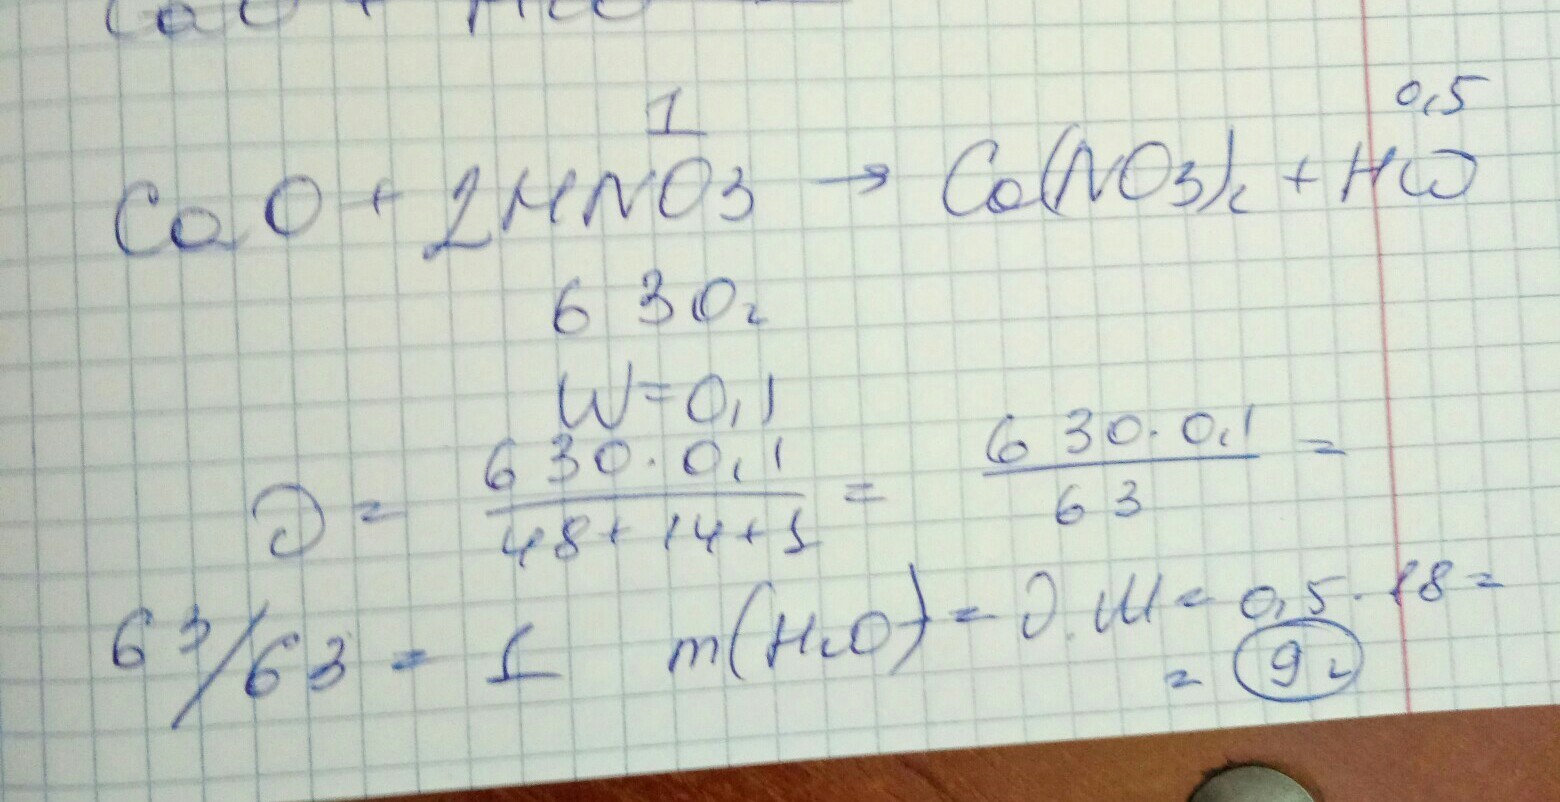 CaO + 2HNO3 → Ca(NO3)2 + H2O
1
0,5
630г
W=0,1
υ = 630·0,1 / 48+14+1 = 630·0,1 / 63 =
63/63 = 1 m(H2O) = υ·M = 0,5·18 =
= 9г